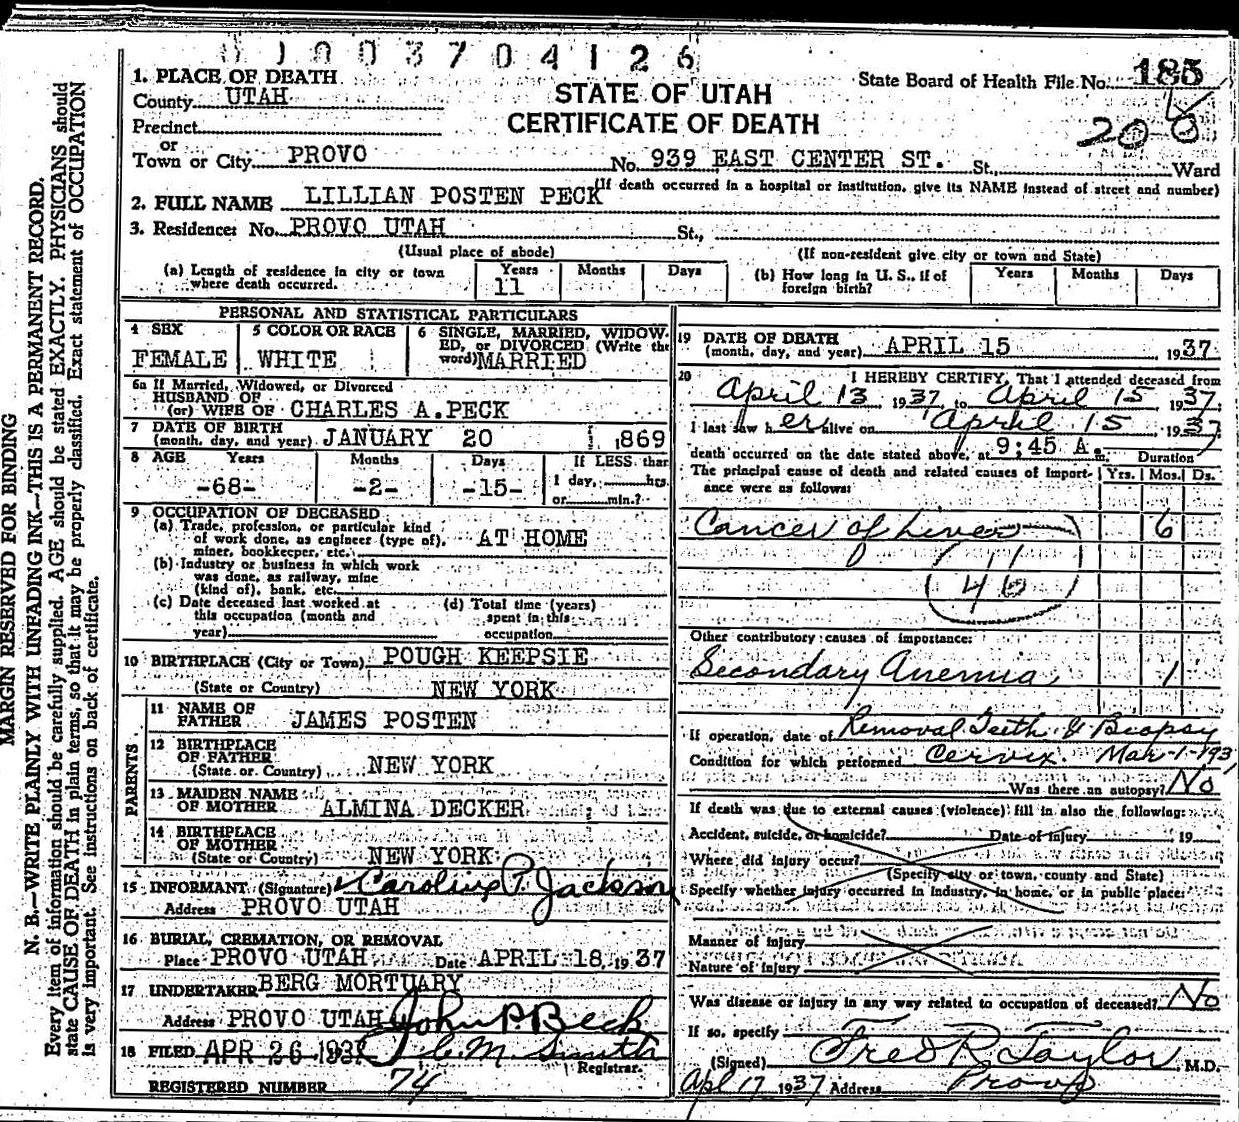 0 1 0 0 3 7 0 4 1 2 6
1. PLACE OF DEATH
County UTAH
Precinct
or
Town or City PROVO
STATE OF UTAH
CERTIFICATE OF DEATH
State Board of Health File No. 185
200
No. 939 EAST CENTER ST. St., Ward
(If death occurred in a hospital or institution, give its NAME instead of street and number)
2. FULL NAME LILLIAN POSTEN PECK
3. Residence: No. PROVO UTAH St.,
(Usual place of abode) (If non-resident give city or town and State)
(a) Length of residence in city or town where death occurred. Years 11 Months Days
(b) How long in U. S., if of foreign birth? Years Months Days
PERSONAL AND STATISTICAL PARTICULARS
4 SEX FEMALE
5 COLOR OR RACE WHITE
6 SINGLE, MARRIED, WIDOWED, or DIVORCED (Write the word) MARRIED
6a If Married, Widowed, or Divorced
HUSBAND OF
(or) WIFE OF CHARLES A. PECK
7 DATE OF BIRTH
(month, day, and year) JANUARY 20 1869
8 AGE Years -68- Months -2- Days -15- If LESS than 1 day, hrs. or min.?
9 OCCUPATION OF DECEASED
(a) Trade, profession, or particular kind of work done, as engineer (type of), miner, bookkeeper, etc. AT HOME
(b) Industry or business in which work was done, as railway, mine (kind of), bank, etc.
(c) Date deceased last worked at this occupation (month and year)
(d) Total time (years) spent in this occupation
10 BIRTHPLACE (City or Town) POUGH KEEPSIE
(State or Country) NEW YORK
PARENTS
11 NAME OF FATHER JAMES POSTEN
12 BIRTHPLACE OF FATHER
(State or Country) NEW YORK
13 MAIDEN NAME OF MOTHER ALMINA DECKER
14 BIRTHPLACE OF MOTHER
(State or Country) NEW YORK
15 INFORMANT (Signature) Caroline P. Jackson
Address PROVO UTAH
16 BURIAL, CREMATION, OR REMOVAL
Place PROVO UTAH Date APRIL 18, 1937
17 UNDERTAKER BERG MORTUARY
Address PROVO UTAH John P. Beck
18 FILED APR 26 1937 M. Smith
Registrar.
REGISTERED NUMBER 74
19 DATE OF DEATH
(month, day, and year) APRIL 15 1937
20 I HEREBY CERTIFY, That I attended deceased from
April 13 1937, to April 15, 1937.
I last saw her alive on April 15 1937
death occurred on the date stated above, at 9:45 A. m.
The principal cause of death and related causes of importance were as follows: Duration Yrs. Mos. Ds.
Cancer of Liver 6
11
46
Other contributory causes of importance:
Secondary Anemia 1
If operation, date of Removal Teeth & Biopsy
Condition for which performed Cervix. Mar-1-193
Was there an autopsy? No
If death was due to external causes (violence) fill in also the following:
Accident, suicide, or homicide? Date of injury 19
Where did injury occur?
(Specify city or town, county and State)
Specify whether injury occurred in industry, in home, or in public place:
Manner of injury
Nature of injury
Was disease or injury in any way related to occupation of deceased? No
If so, specify
(Signed) Fred R. Taylor M.D.
Apl 17 1937 Address Provo
MARGIN RESERVED FOR BINDING
N. B.—WRITE PLAINLY WITH UNFADING INK—THIS IS A PERMANENT RECORD.
Every item of information should be carefully supplied. AGE should be stated EXACTLY. PHYSICIANS should
state CAUSE OF DEATH in plain terms, so that it may be properly classified. Exact statement of OCCUPATION
is very important. See instructions on back of certificate.